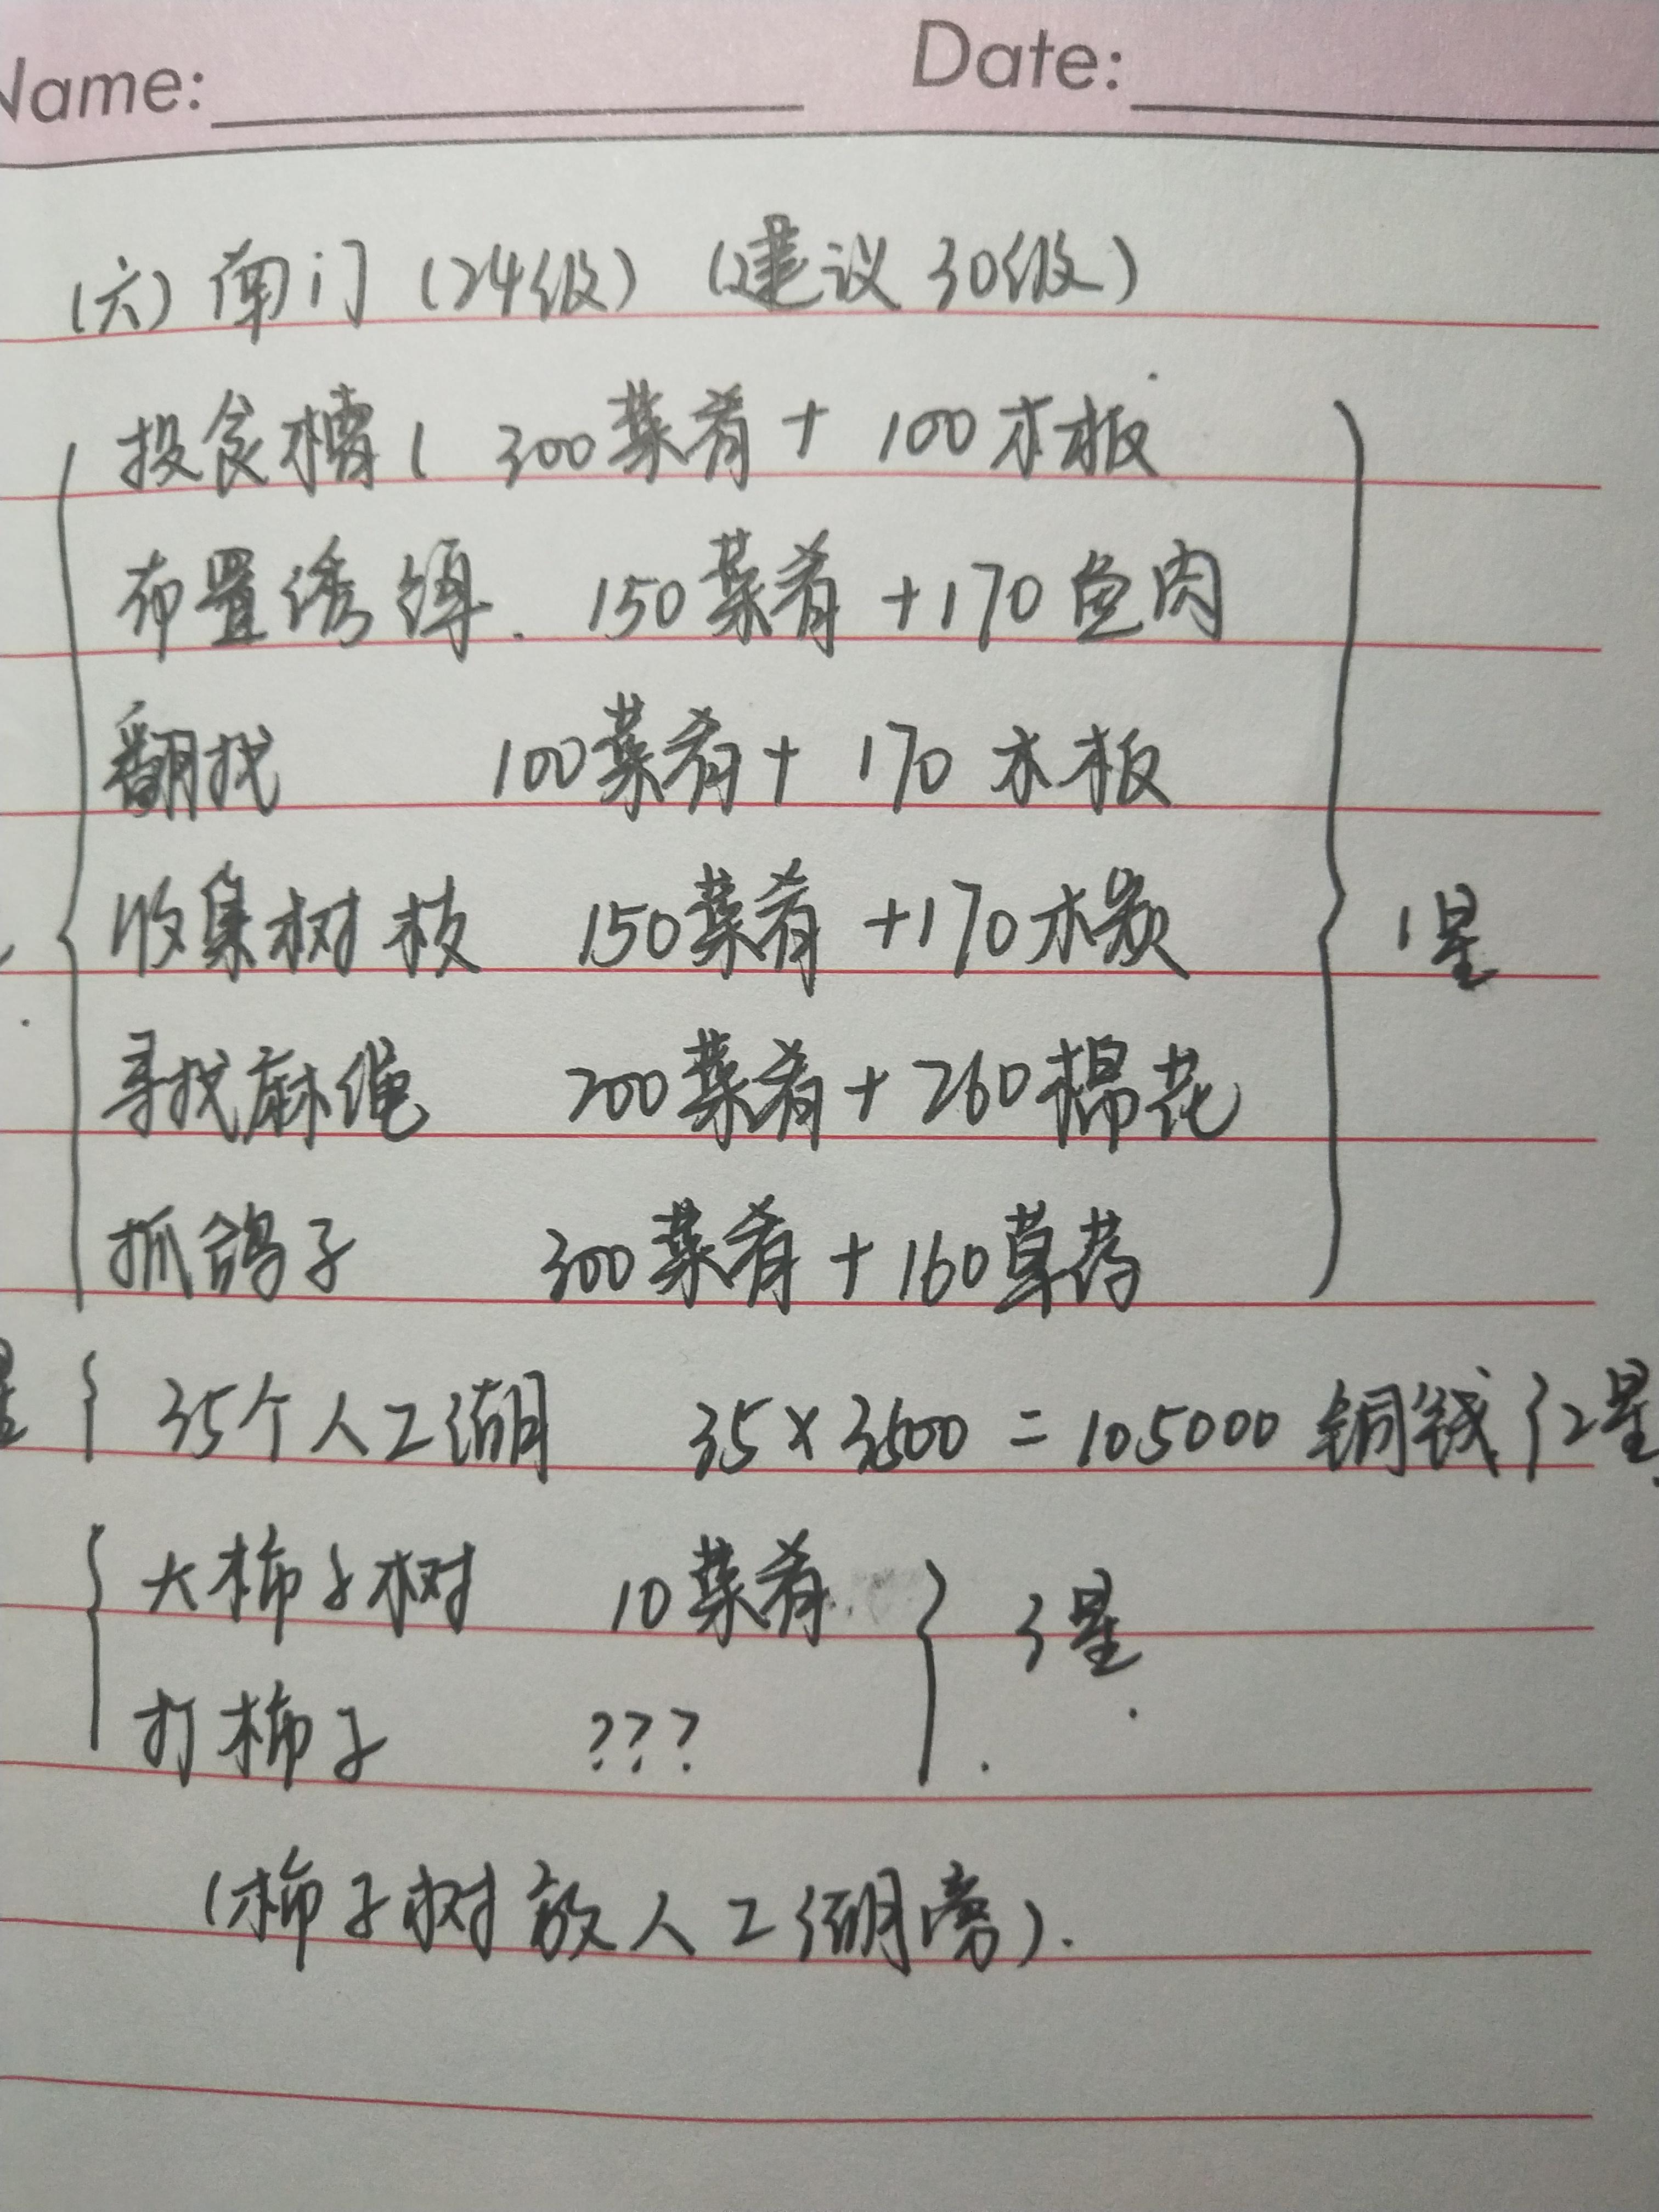 Name: Date:
(六) 南门 (24级) (建议30级)
投食槽1 300菜肴 + 100木板
布置诱饵. 150菜肴 +170鱼肉
翻找 100菜肴 + 170 木板
收集树枝 150菜肴 +170木炭
寻找麻绳 200菜肴 + 260棉花
抓鸽子 300菜肴 + 160草药
1星
星 { 35个人工湖 35×3500 = 105000 铜钱 } 2星
大柿子树 10菜肴
打柿子 ???
3星
(柿子树放人工湖旁).